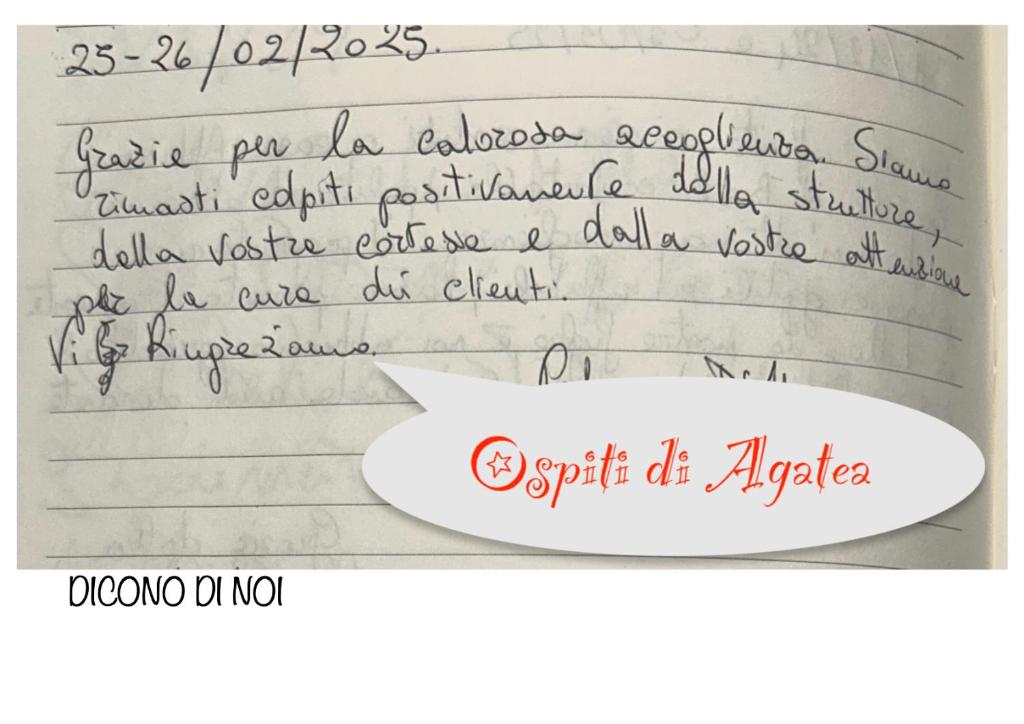 25-26/02/2025.
Grazie per la calorosa accoglienza. Siamo
rimasti colpiti positivamente dalla struttura,
della vostra cortesia e dalla vostra attenzione
per la cura dei clienti.
Vi Ringraziamo.
Ospiti di Agatea
DICONO DI NOI